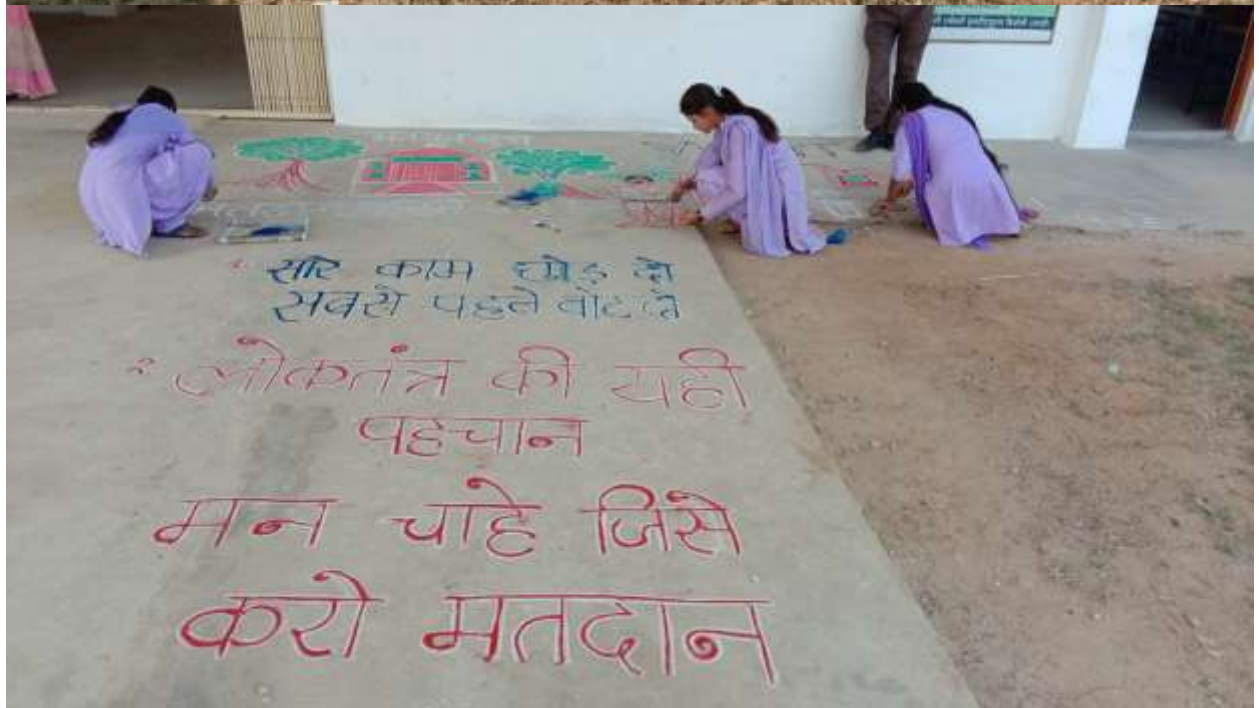 १ सारे काम छोड़ दो
सबसे पहले वोट दो
२ लोकतंत्र की यही
पहचान
मन चाहे जिसे
करो मतदान